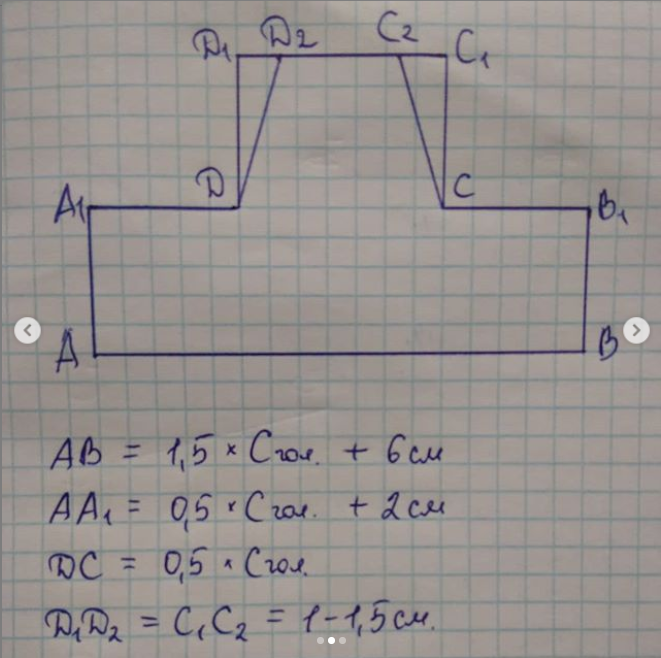 D₁ D₂ C₂ C₁
A₁ D C B₁
A B
AB = 1,5 × Сгол. + 6см
AA₁ = 0,5 × Сгол. + 2см
DC = 0,5 × Сгол.
D₁D₂ = C₁C₂ = 1-1,5см.